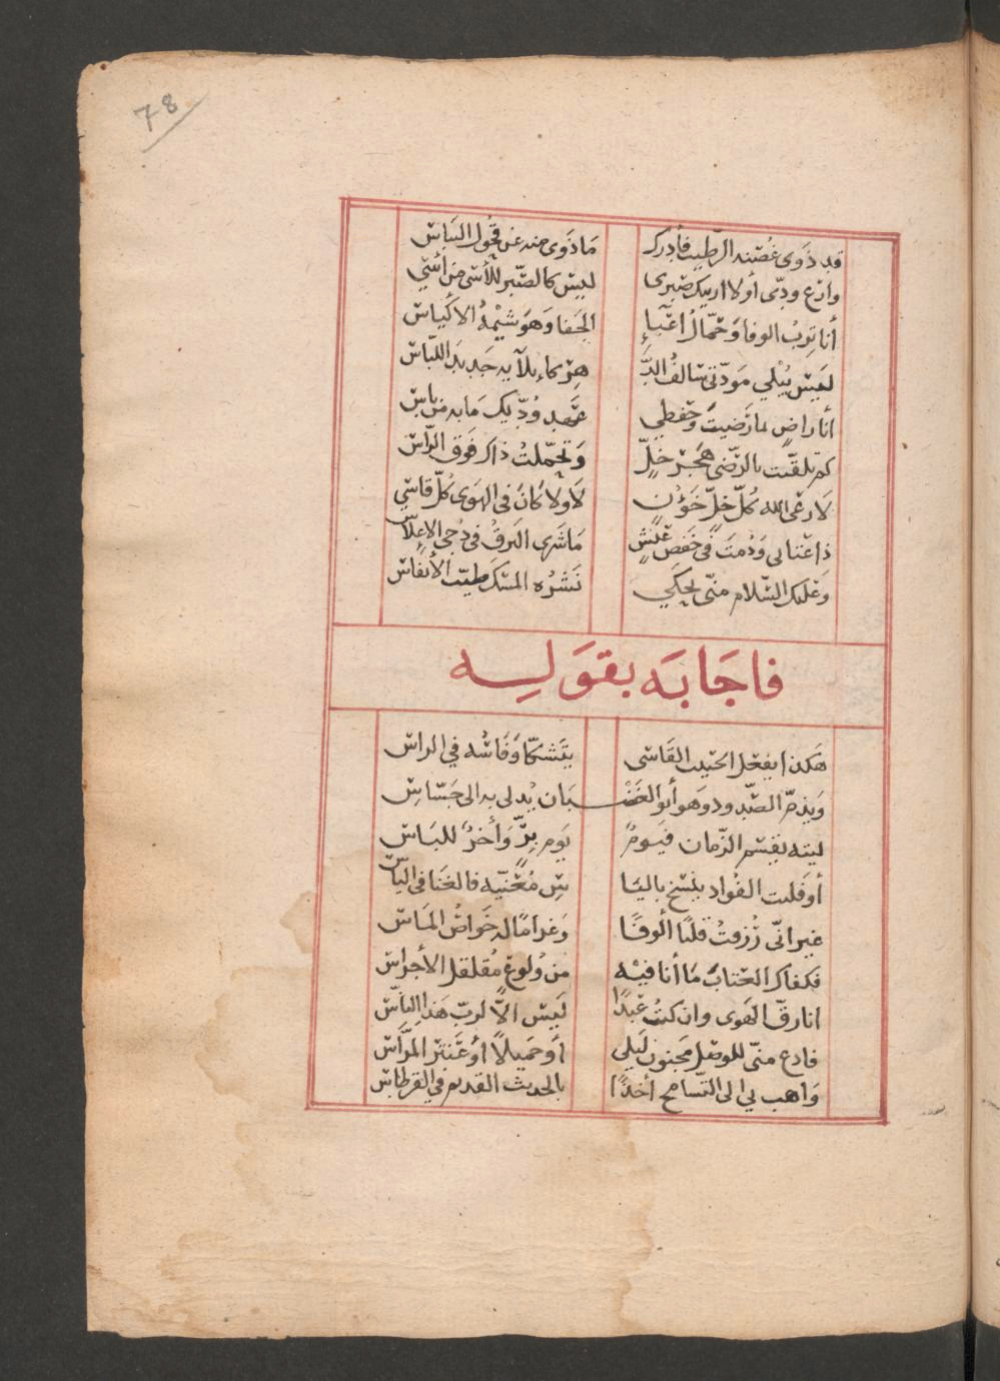 78
قد ذوى غصنه الرطيب فأدرك ما ذوى منه غن قحول الباس
وارع ودي أولا اريك صبري ليس كالصبر للأسى من أسي
أنا ترب الوفا وحمال اعباء الجفا وهو شيمة الاكياس
ليس يبلي مودتي سالف
أنا راض لما رضيت وحفظي عهد وديك مابه من باس
كم تلقيت بالرضى هجر خل وتحملت ذاك فوق الراس
لا رعى الله كل خل خؤن لا ولا كان في الهوى كل قاسي
ودمت في خفض عيش ما شرى البرق في دجي
وعليك السلام مني يحكي نشره المسك طيب الأنفاس
فاجابه بقوله
هكذا يفعل الحبيب القاسى وفاسه في الراس
ويذم الصد ود وهو أبو الغضبان يدلى به الى جساس
ليته يقسم الزمان فيوم يوم بر وأخر للباس
أو فليت الفواد
غير اني رزقت قلبا ألوفا وغراما له خواص الماس
فكفاك العتاب ما أنا فيه من ولوع مقلقل الأجراس
انا رق الهوى وان كنت عبدا ليس الا لرب هذا الباس
فادع مني للوصل مجنون ليلي أو جميلا أو عنتر المراس
واهب بي الى التسامح أخذا بالحديث القديم في القرطاس